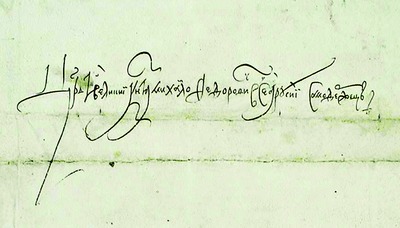 Црь и великии кнзь михаило федорович всеа русии самодержецъ